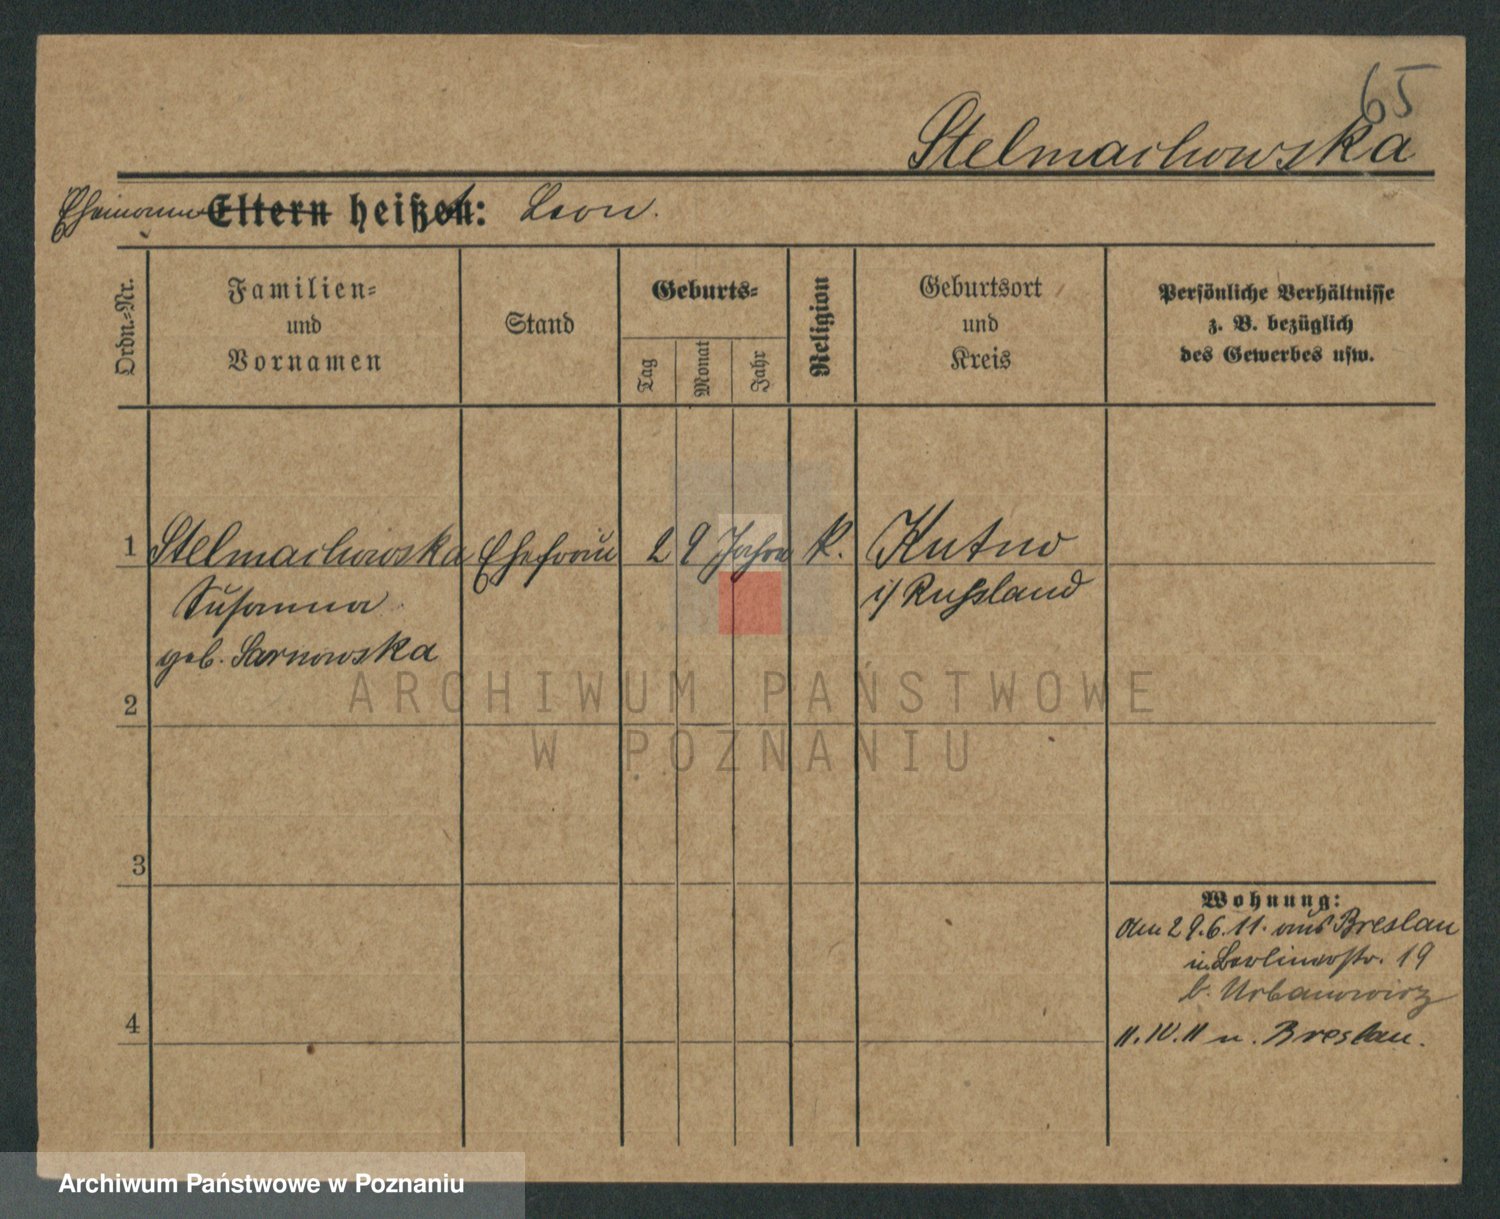 65
Stelmachowska
Ehemann Eltern heißen: Leon.
Ordn.-Nr.
Familien-
und
Vornamen
Stand
Geburts-
Tag
Monat
Jahr
Religion
Geburtsort
und
Kreis
Persönliche Verhältnisse
z. B. bezüglich
des Gewerbes usw.
1 Stelmachowska Ehefrau 29 Jahre k. Kutno
Susanna i/ Russland
geb. Sarnowska
2
3
4
Wohnung:
den 29.6.11. aus Breslau
in Berlinerstr. 19
b. Urbanowicz
11.IV.11 n. Breslau.
ARCHIWUM PAŃSTWOWE
W POZNANIU
Archiwum Państwowe w Poznaniu